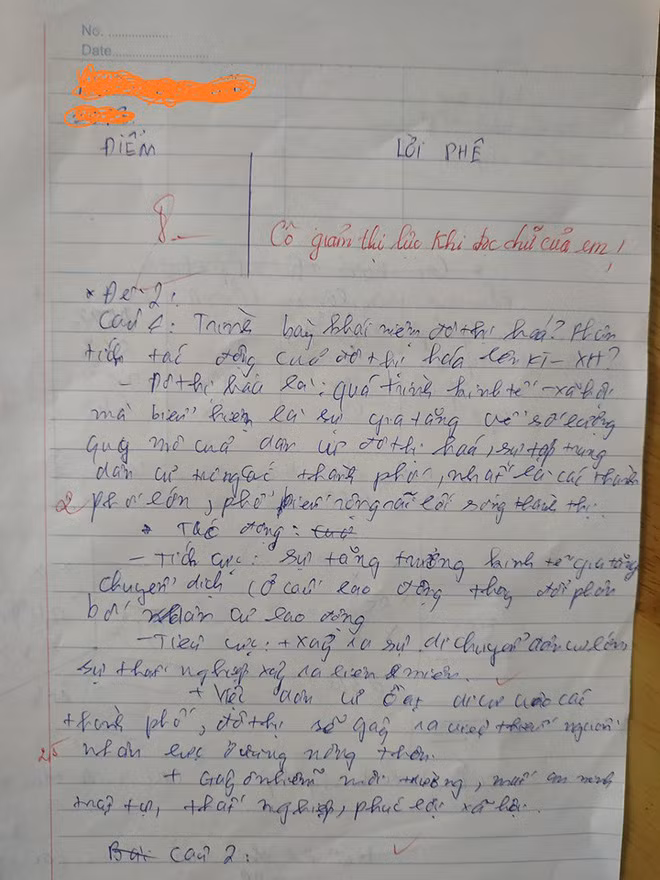 No. ..................
Date..........................
ĐIỂM
LỜI PHÊ
8
Cô giảm thị lực khi đọc chữ của em!
* Đề 2:
Câu 1: Trình bày khái niệm đô thị hoá? Phân
tích tác động của đô thị hóa lên KT - XH?
- Đô thị hóa là: quá trình kinh tế - xã hội
mà biểu hiện là sự gia tăng về số lượng
quy mô của dân cư đô thị hoá, sự tập trung
dân cư trong các thành phố, nhất là các thành
2 phố lớn, phổ biến rộng rãi lối sống thành thị.
* Tác động:
- Tích cực: sự tăng trưởng kinh tế gia tăng
chuyển dịch cơ cấu lao động thay đổi phân
bố dân cư lao động
- Tiêu cực: + xảy ra sự di chuyển dân cư lớn
sự thất nghiệp xảy ra liên miên.
+ Việc dân cư ồ ạt di cư vào các
thành phố, đô thị sẽ gây ra việc thiếu nguồn
2,5 nhân lực ở vùng nông thôn.
+ Gây ô nhiễm môi trường, mất an ninh
trật tự, thất nghiệp, phúc lợi xã hội.
Bài Câu 2: